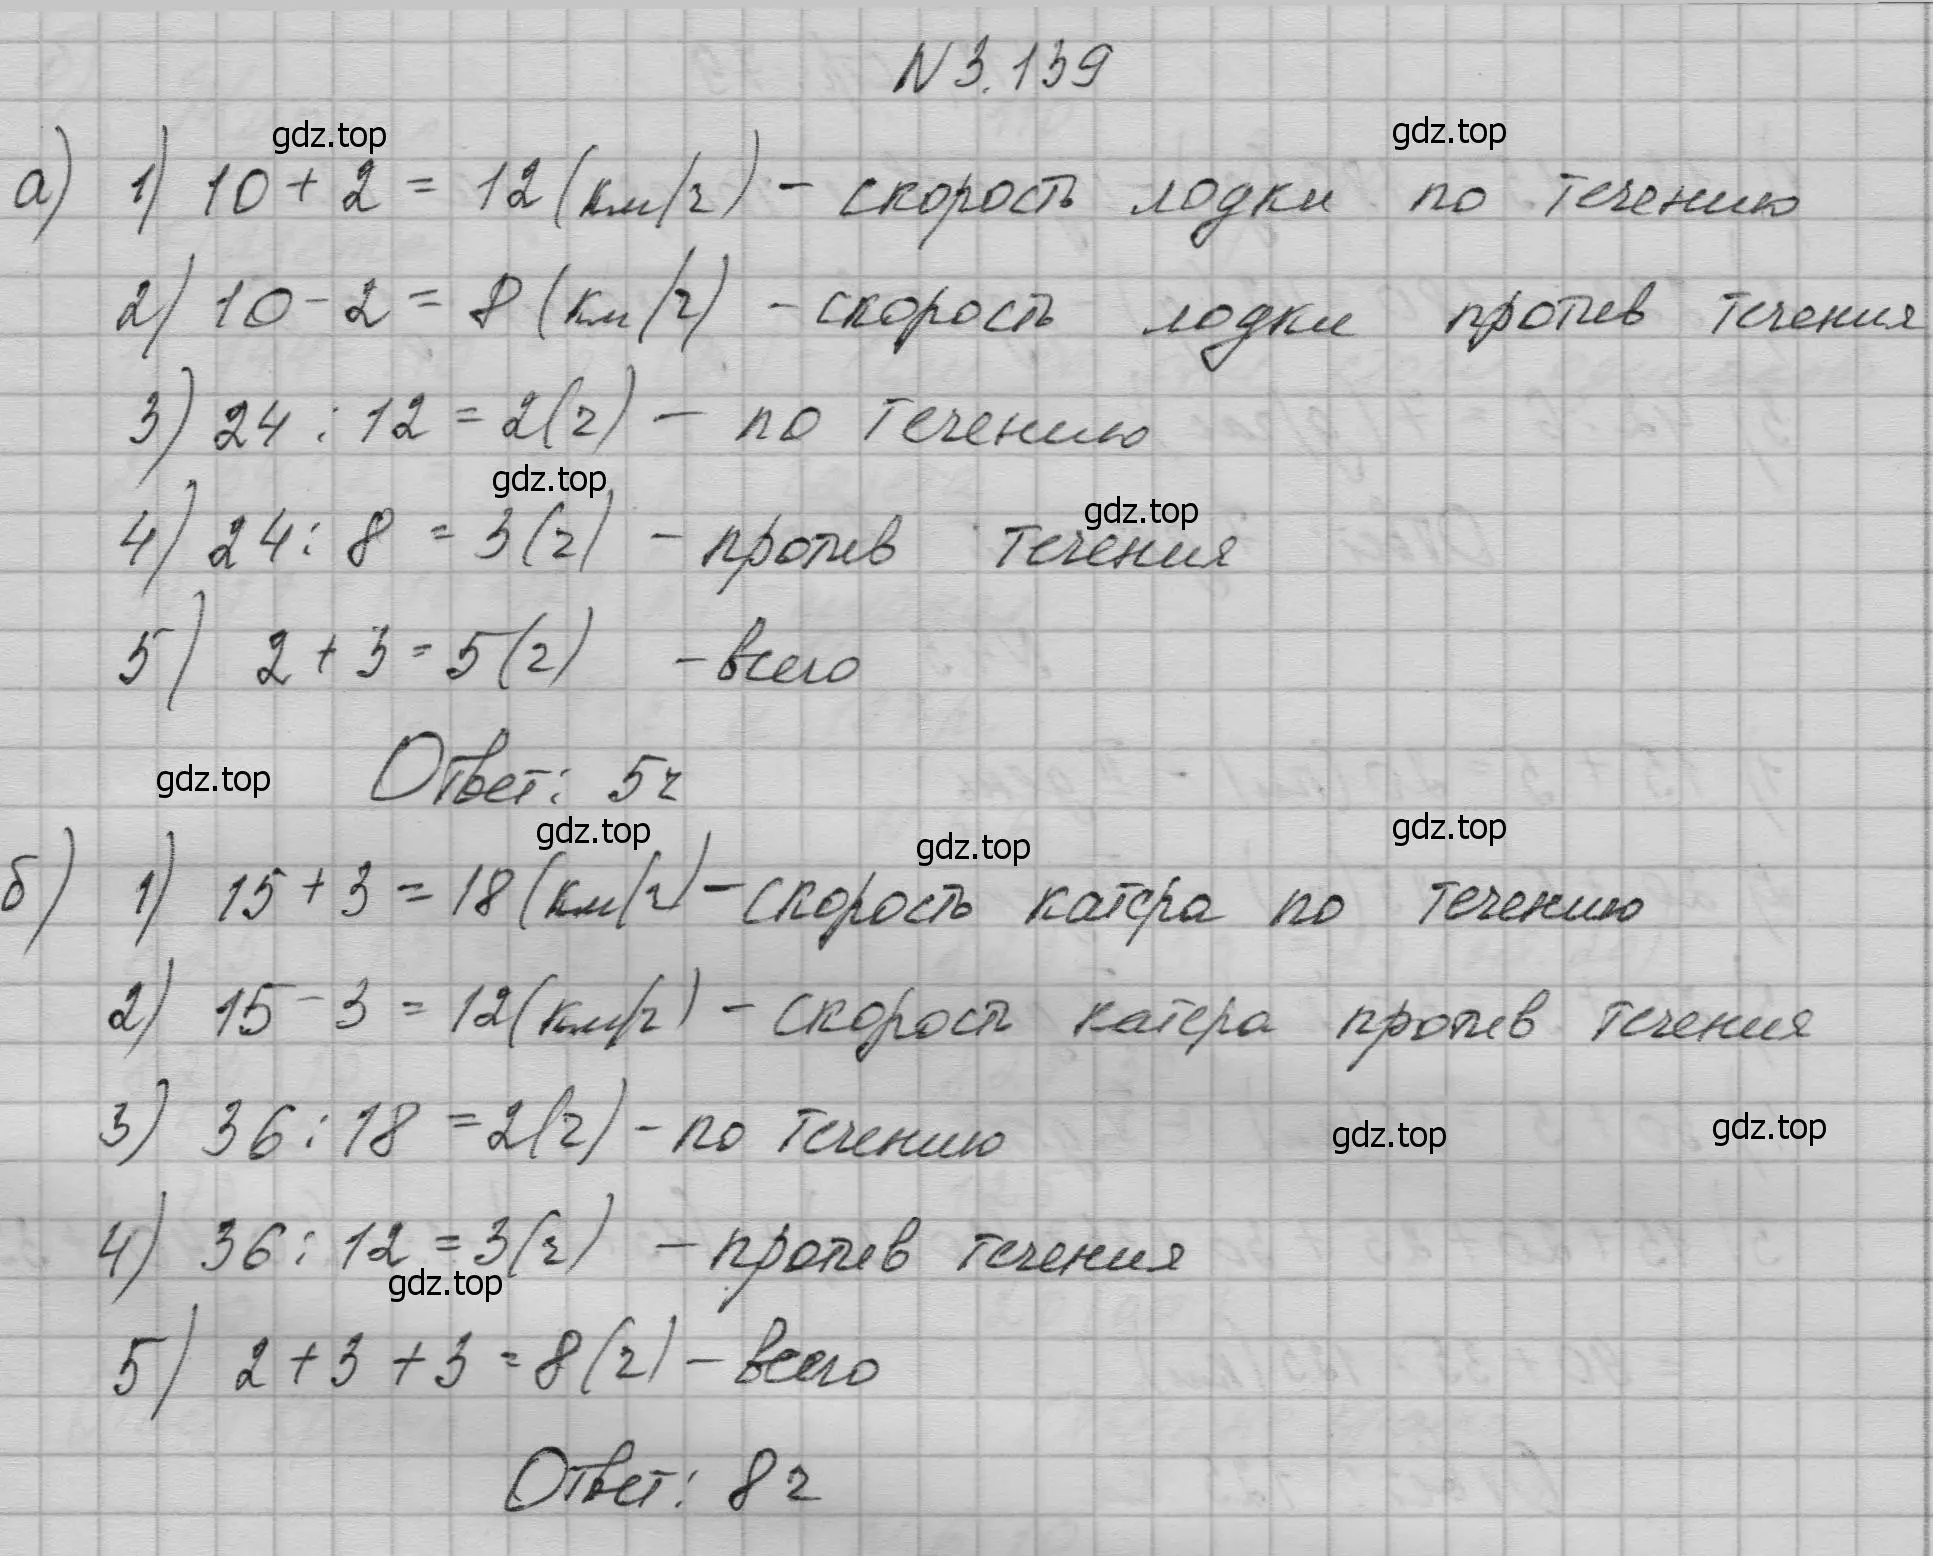 N 3.139
а) 1) 10 + 2 = 12 (км/ч) - скорость лодки по течению
2) 10 - 2 = 8 (км/ч) - скорость лодки против течения
3) 24 : 12 = 2 (ч) - по течению
4) 24 : 8 = 3 (ч) - против течения
5) 2 + 3 = 5 (ч) - всего
Ответ: 5 ч
б) 1) 15 + 3 = 18 (км/ч) - скорость катера по течению
2) 15 - 3 = 12 (км/ч) - скорость катера против течения
3) 36 : 18 = 2 (ч) - по течению
4) 36 : 12 = 3 (ч) - против течения
5) 2 + 3 + 3 = 8 (ч) - всего
Ответ: 8 ч
gdz.top
gdz.top
gdz.top
gdz.top
gdz.top
gdz.top
gdz.top
gdz.top
gdz.top
gdz.top
gdz.top